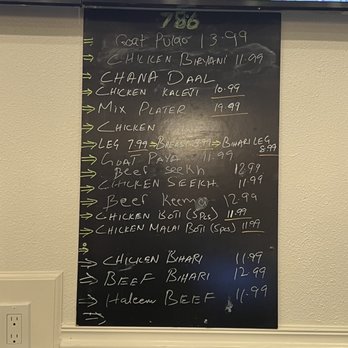 786
Goat Pulao 13.99
CHICKEN BIRYANI 11.99
CHANA DAAL
CHICKEN KALEJI 10.99
MIX PLATER 19.99
CHICKEN
LEG 7.99 BREAST 9.99 BIHARI LEG 8.99
GOAT PAYA 11.99
Beef Seekh 12.99
CHICKEN SEEKH 11.99
Beef Keema 12.99
CHICKEN BOTI (5pcs) 11.99
CHICKEN MALAI BOTI (5pcs) 11.99
CHICKEN BIHARI 11.99
BEEF BIHARI 12.99
Haleem BEEF 11.99